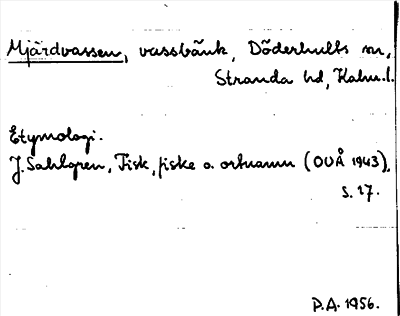 Mjärdvassen, vassbänk, Döderhults sn,
Stranda hd, Kalm. l.
Etymologi.
J. Sahlgren, Fisk, fiske o. ortnamn (OUÅ 1943),
s. 27.
P.A. 1956.